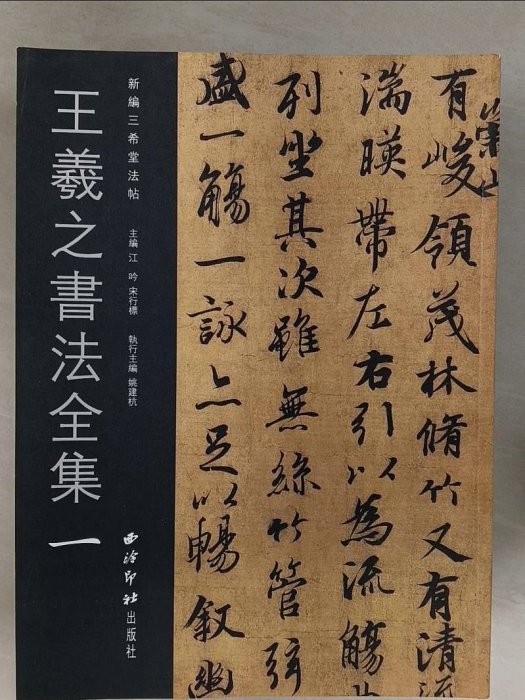 王羲之書法全集 一
新編三希堂法帖
主編 江吟 宋行標
執行主編 姚建杭
西泠印社出版社
有崇山峻領茂林脩竹又有清流
湍暎帶左右引以為流觴
列坐其次雖無絲竹管弦
盛一觴一詠亦足以暢叙幽